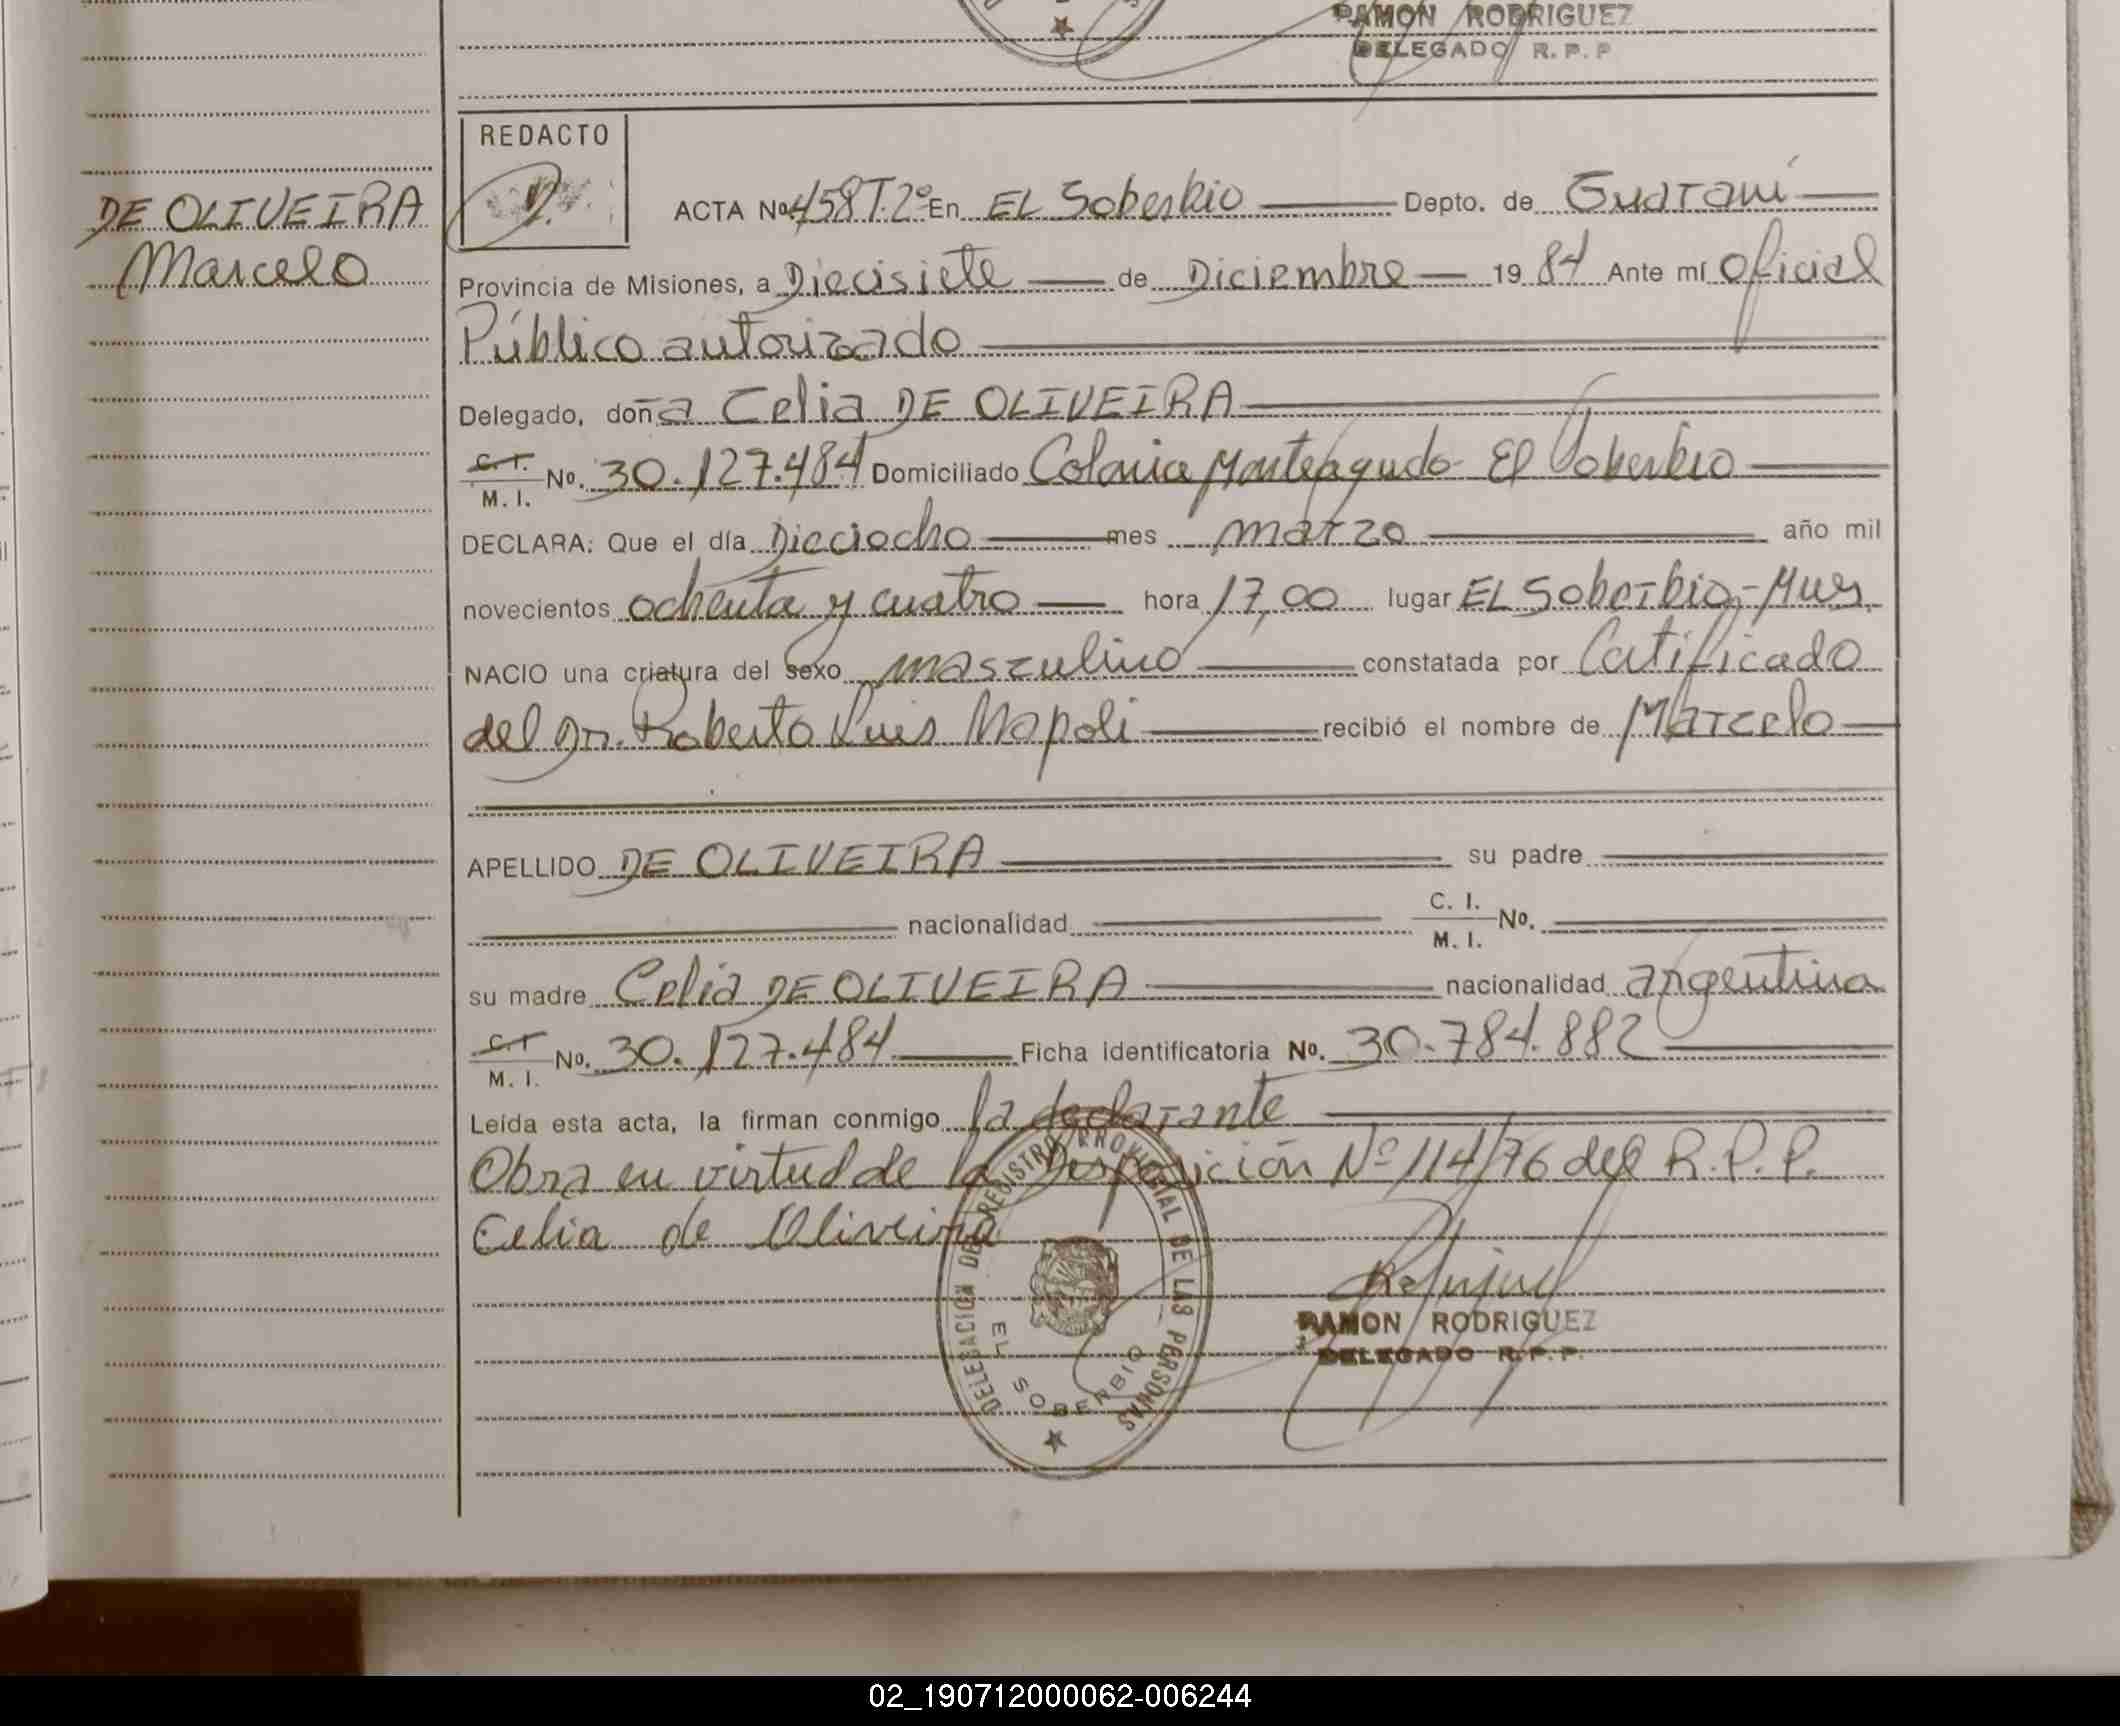 RAMON RODRIGUEZ
DELEGADO R. P. P
DE OLIVEIRA
Marcelo
REDACTO
ACTA No. 458 T.2º En EL Soberbio Depto. de Guaraní
Provincia de Misiones, a Diecisiete de Diciembre 19 84 Ante mí Oficial
Público autorizado
Delegado, doña Celia DE OLIVEIRA
C. I.
M. I. No. 30.127.484 Domiciliado Colonia Monteagudo - El Soberbio
DECLARA: Que el día Dieciocho mes marzo año mil
novecientos ochenta y cuatro hora 17,00 lugar EL Soberbio,
NACIO una criatura del sexo masculino constatada por Certificado
del Dr. Roberto Luis Napoli recibió el nombre de Marcelo
APELLIDO DE OLIVEIRA su padre
nacionalidad C. I.
M. I. No.
su madre Celia DE OLIVEIRA nacionalidad argentina
C. I.
M. I. No. 30.127.484 Ficha identificatoria No. 30.784.882
Leída esta acta, la firman conmigo la declarante
Obra en virtud de la Disposición Nº 114/76 del R.P.P.
Celia de Oliveira
DELEGACION DEL REGISTRO PROVINCIAL DE LAS PERSONAS
EL SOBERBIO
RAMON RODRIGUEZ
DELEGADO R. P. P.
02_190712000062-006244